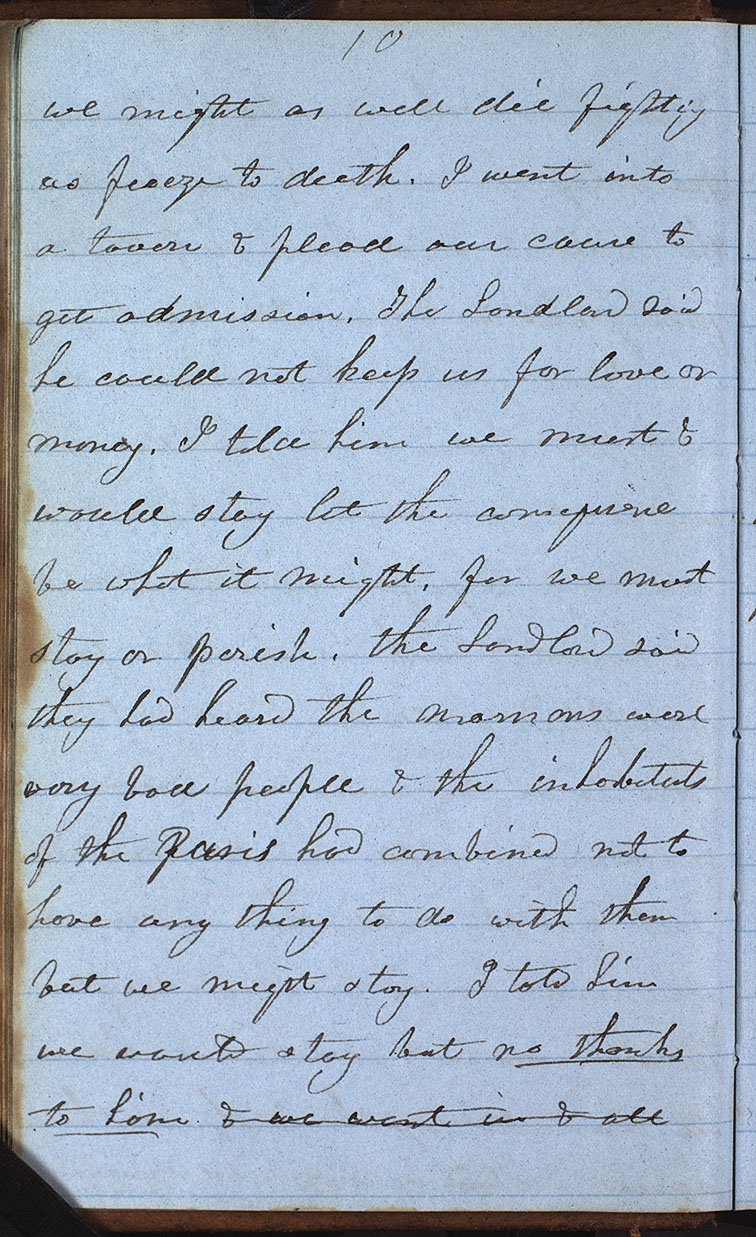 10
we might as well die fighting
as freeze to death. I went into
a tavern & plead our cause to
get admission. The Landlord said
he could not keep us for love or
money. I told him we must &
would stay let the consequence
be what it might, for we must
stay or perish. the Landlord said
they had heard the mormons were
very bad people & the inhabitants
of the Paris had combined not to
have any thing to do with them
but we might stay. I told him
we would stay but no thanks
to him & we went in & all